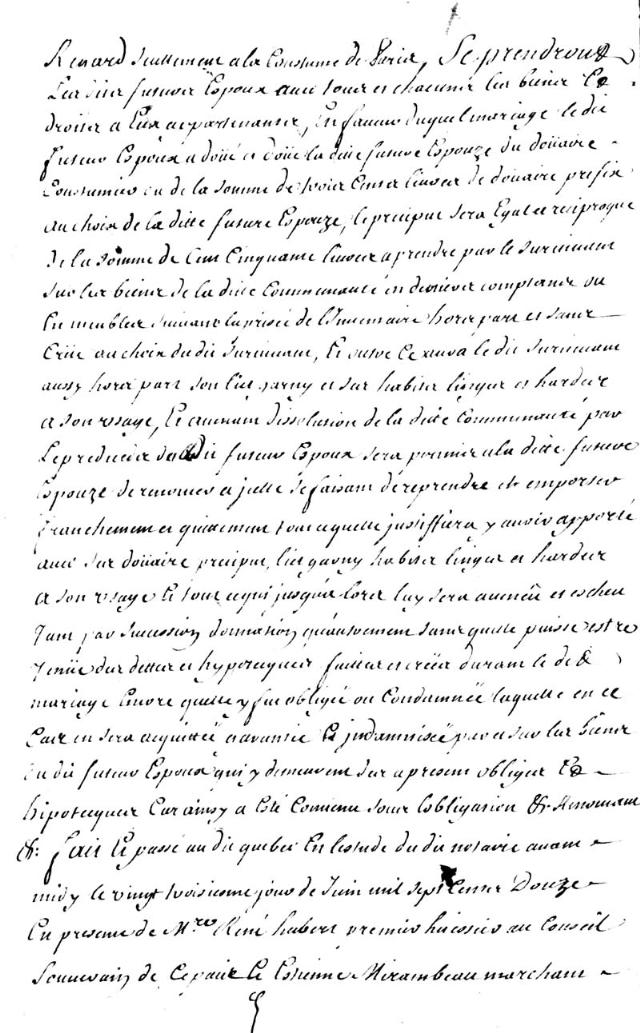 Renard suittament a la Coustume de Paris, Se prendront
Lesdits futurs Espoux avec tous et chacuns les biens Et
droits a Eux apartenants, En faveur duquel mariage le dit
futur Espoux a doüé et doüe la ditte future Espouze du doüaire
Coustumier ou de la somme de trois Cents livres de doüaire prefix
au choix de la ditte future Espouze, le preciput sera Egal et reciproque
de la somme de Cent Cinquante livres a prendre par le survivant
sur les biens de la ditte Communauté en deniers comptants ou
En meubles suivant la prisée de l'Inventaire hors part et sans
Criüe au choix du dit survivant, Et outre ce aura le dit survivant
aussy hors part son lict garny et ses habits linges et hardes
a son usage, Et avenant dissolution de la ditte Communauté par
Le predecès du dit futur Espoux sera permis a la ditte future
Espouze de renoncer a jcelle Se faisant de reprendre et emporter
franchement et quittement tout ce quelle justiffiera y avoir apporté
avec ses doüaire preciput, lict garny habits linges et hardes
a son usage Et tout ce qui jusqu'a lors luy sera avenü et escheu
Tant par succession donnation qu'autrement sans quelle puisse estre
Tenüe des dettes et hypotecques faittes et créés durant le dit
mariage Encore quelle y fut obligée ou Condamnée laquelle en ce
Cas en sera acquittée garantie Et jndamnisée par et sur les biens
du dit futur Espoux qui y demeurent des a present obligés Et
hipotecqués Car ainsy a Esté Convenu sous l'obligation &. Renonceant
&. fait Et passé au dit quebec En l'estude du dit notaire avant
midy le vingt troisieme jour de Juin mil sept Cents Douze
En presence de Mre René hubert premier huissier au Conseil
Souverain de Ce païs Et Estienne Mirambeau marchant